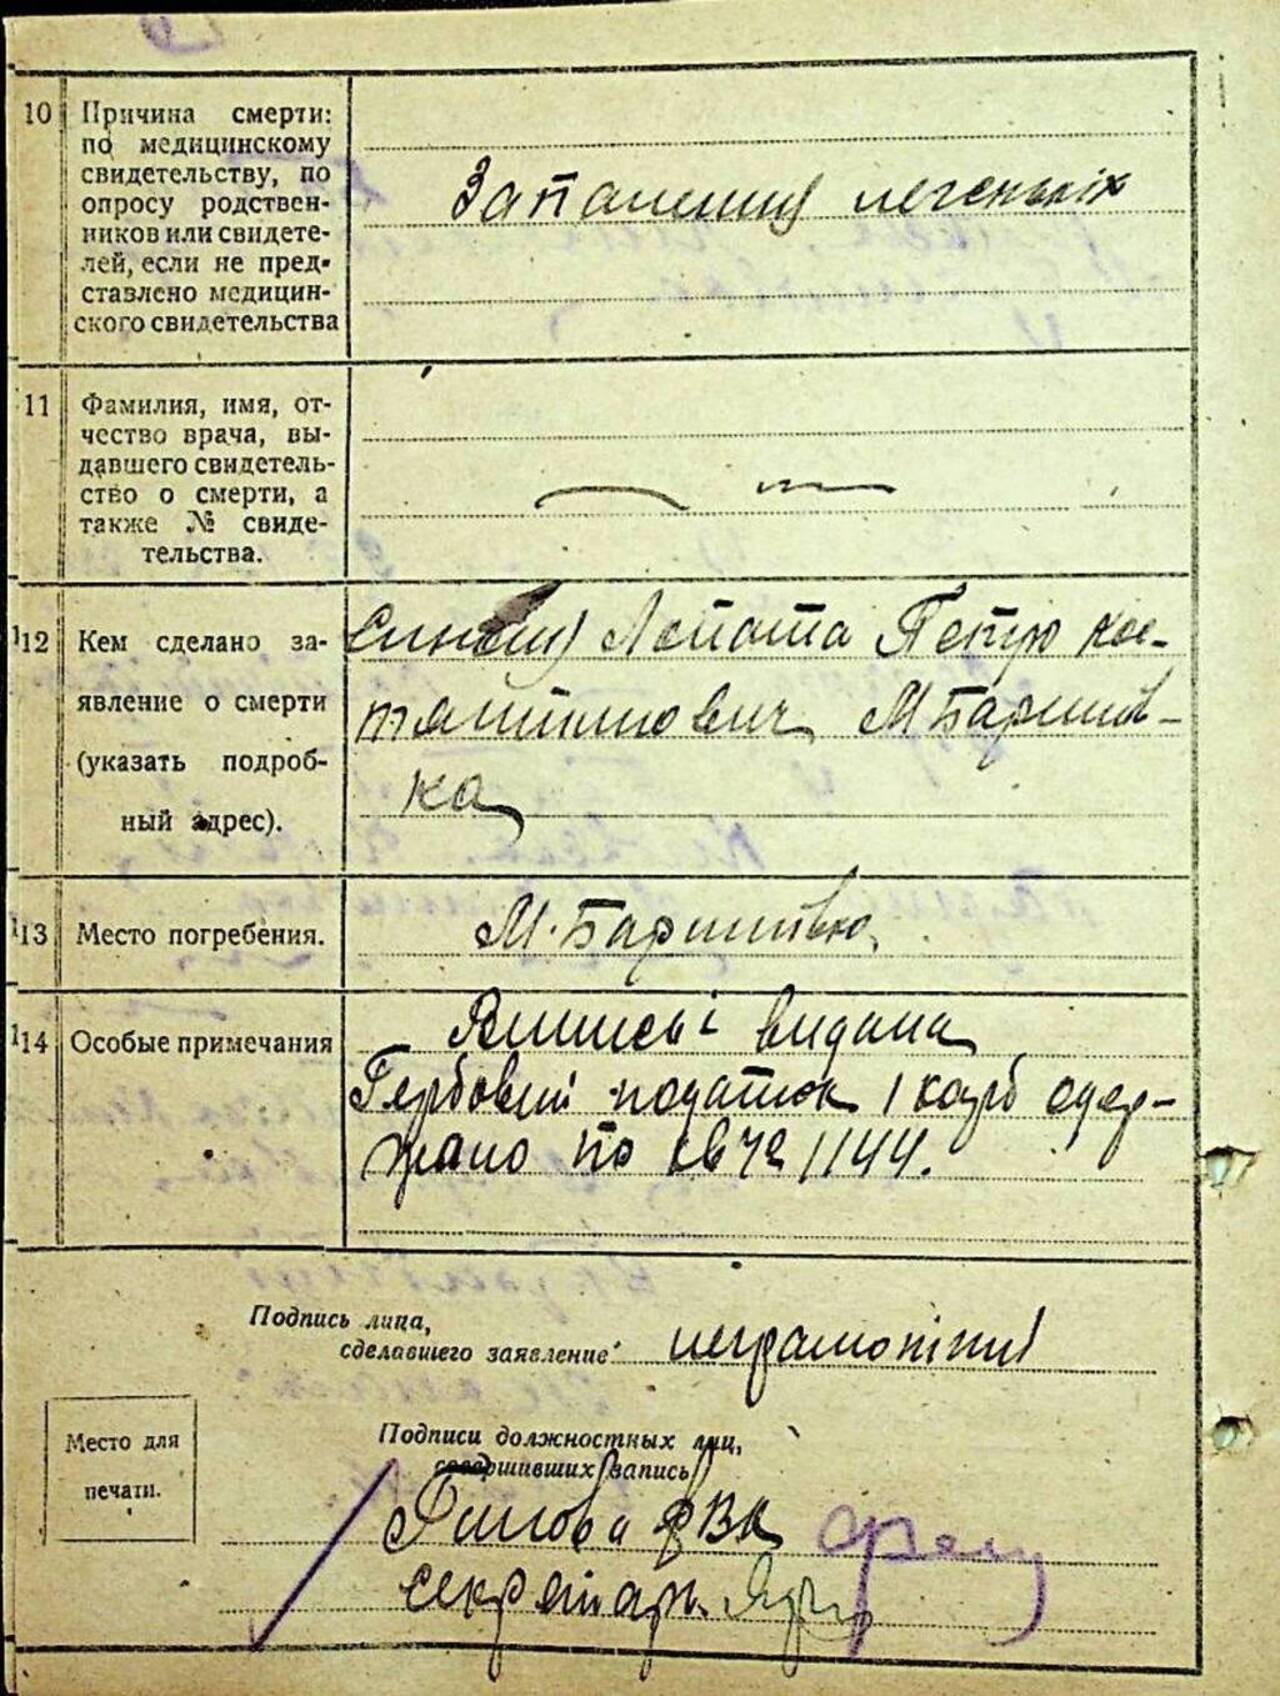 10 Причина смерти:
по медицинскому
свидетельству, по
опросу родствен-
ников или свидете-
лей, если не пред-
ставлено медицин-
ского свидетельства
Запалення легеньіх
11 Фамилия, имя, от-
чество врача, вы-
давшего свидетель-
ство о смерти, а
также № свиде-
тельства.
12 Кем сделано за-
явление о смерти
(указать подроб-
ный адрес).
Лопата Петро кос-
тантинович М Баришів-
ка
13 Место погребения.
М. Баришівка
14 Особые примечания
видана
Гербовий податок 1 карб одер-
жано по кв 72 1144.
Подпись лица,
сделавшего заявление: неграмотний
Место для
печати.
Подписи должностных лиц,
совершивших запись
Голова
секретарь